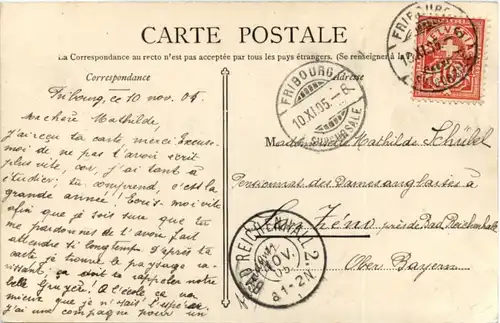 CARTE POSTALE
La Correspondance au recto n'est pas acceptée par tous les pays étrangers. (Se renseigner à la
Correspondance
Adresse
Fribourg ce 10 nov. 05.
Ma chère Mathilde,
J'ai reçu ta carte, merci. Excuse-
moi de ne pas t'avoir écrit
plus vite, car, j'ai tant à
étudier; tu comprend, c'est la
grande année! Ecris-moi vite
afin que je sois sûr que tu
me pardonnes de t'avoir fait
attendre si longtemps. D'après ta
carte je trouve le paysage ra-
vissant; ça doit te rappeler notre
belle Gruyère! A l'école ça va
mieux que je n'osait l'espérer.
j'ai une compagne pour un
FRIBOURG
10.XI.05.-8
SUCCURSALE
FRIBOURG
HELVETIA
10
Mademoiselle Mathilde Schübel
Pensionnat des Dames anglaises à
St. Zéno près de Bad Reichenhall
Ober Bayern
BAD REICHENHALL 2
NOV.